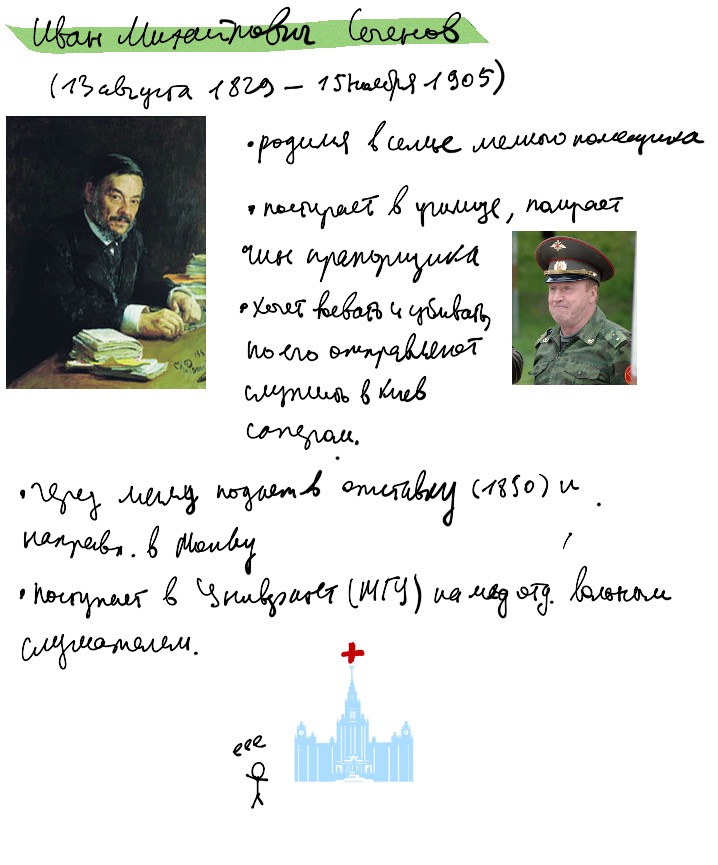 Иван Михайлович Сеченов
(13 августа 1829 – 15 ноября 1905)
• родился в семье мелкого помещика
• поступает в училище, получает
чин прапорщика
• хочет воевать и убивать,
но его отправляют
служить в Киев
сапером.
• через месяц подает в отставку (1850) и
направл. в Москву
• поступает в Университет (МГУ) на мед отд. вольным
слушателем.
еее